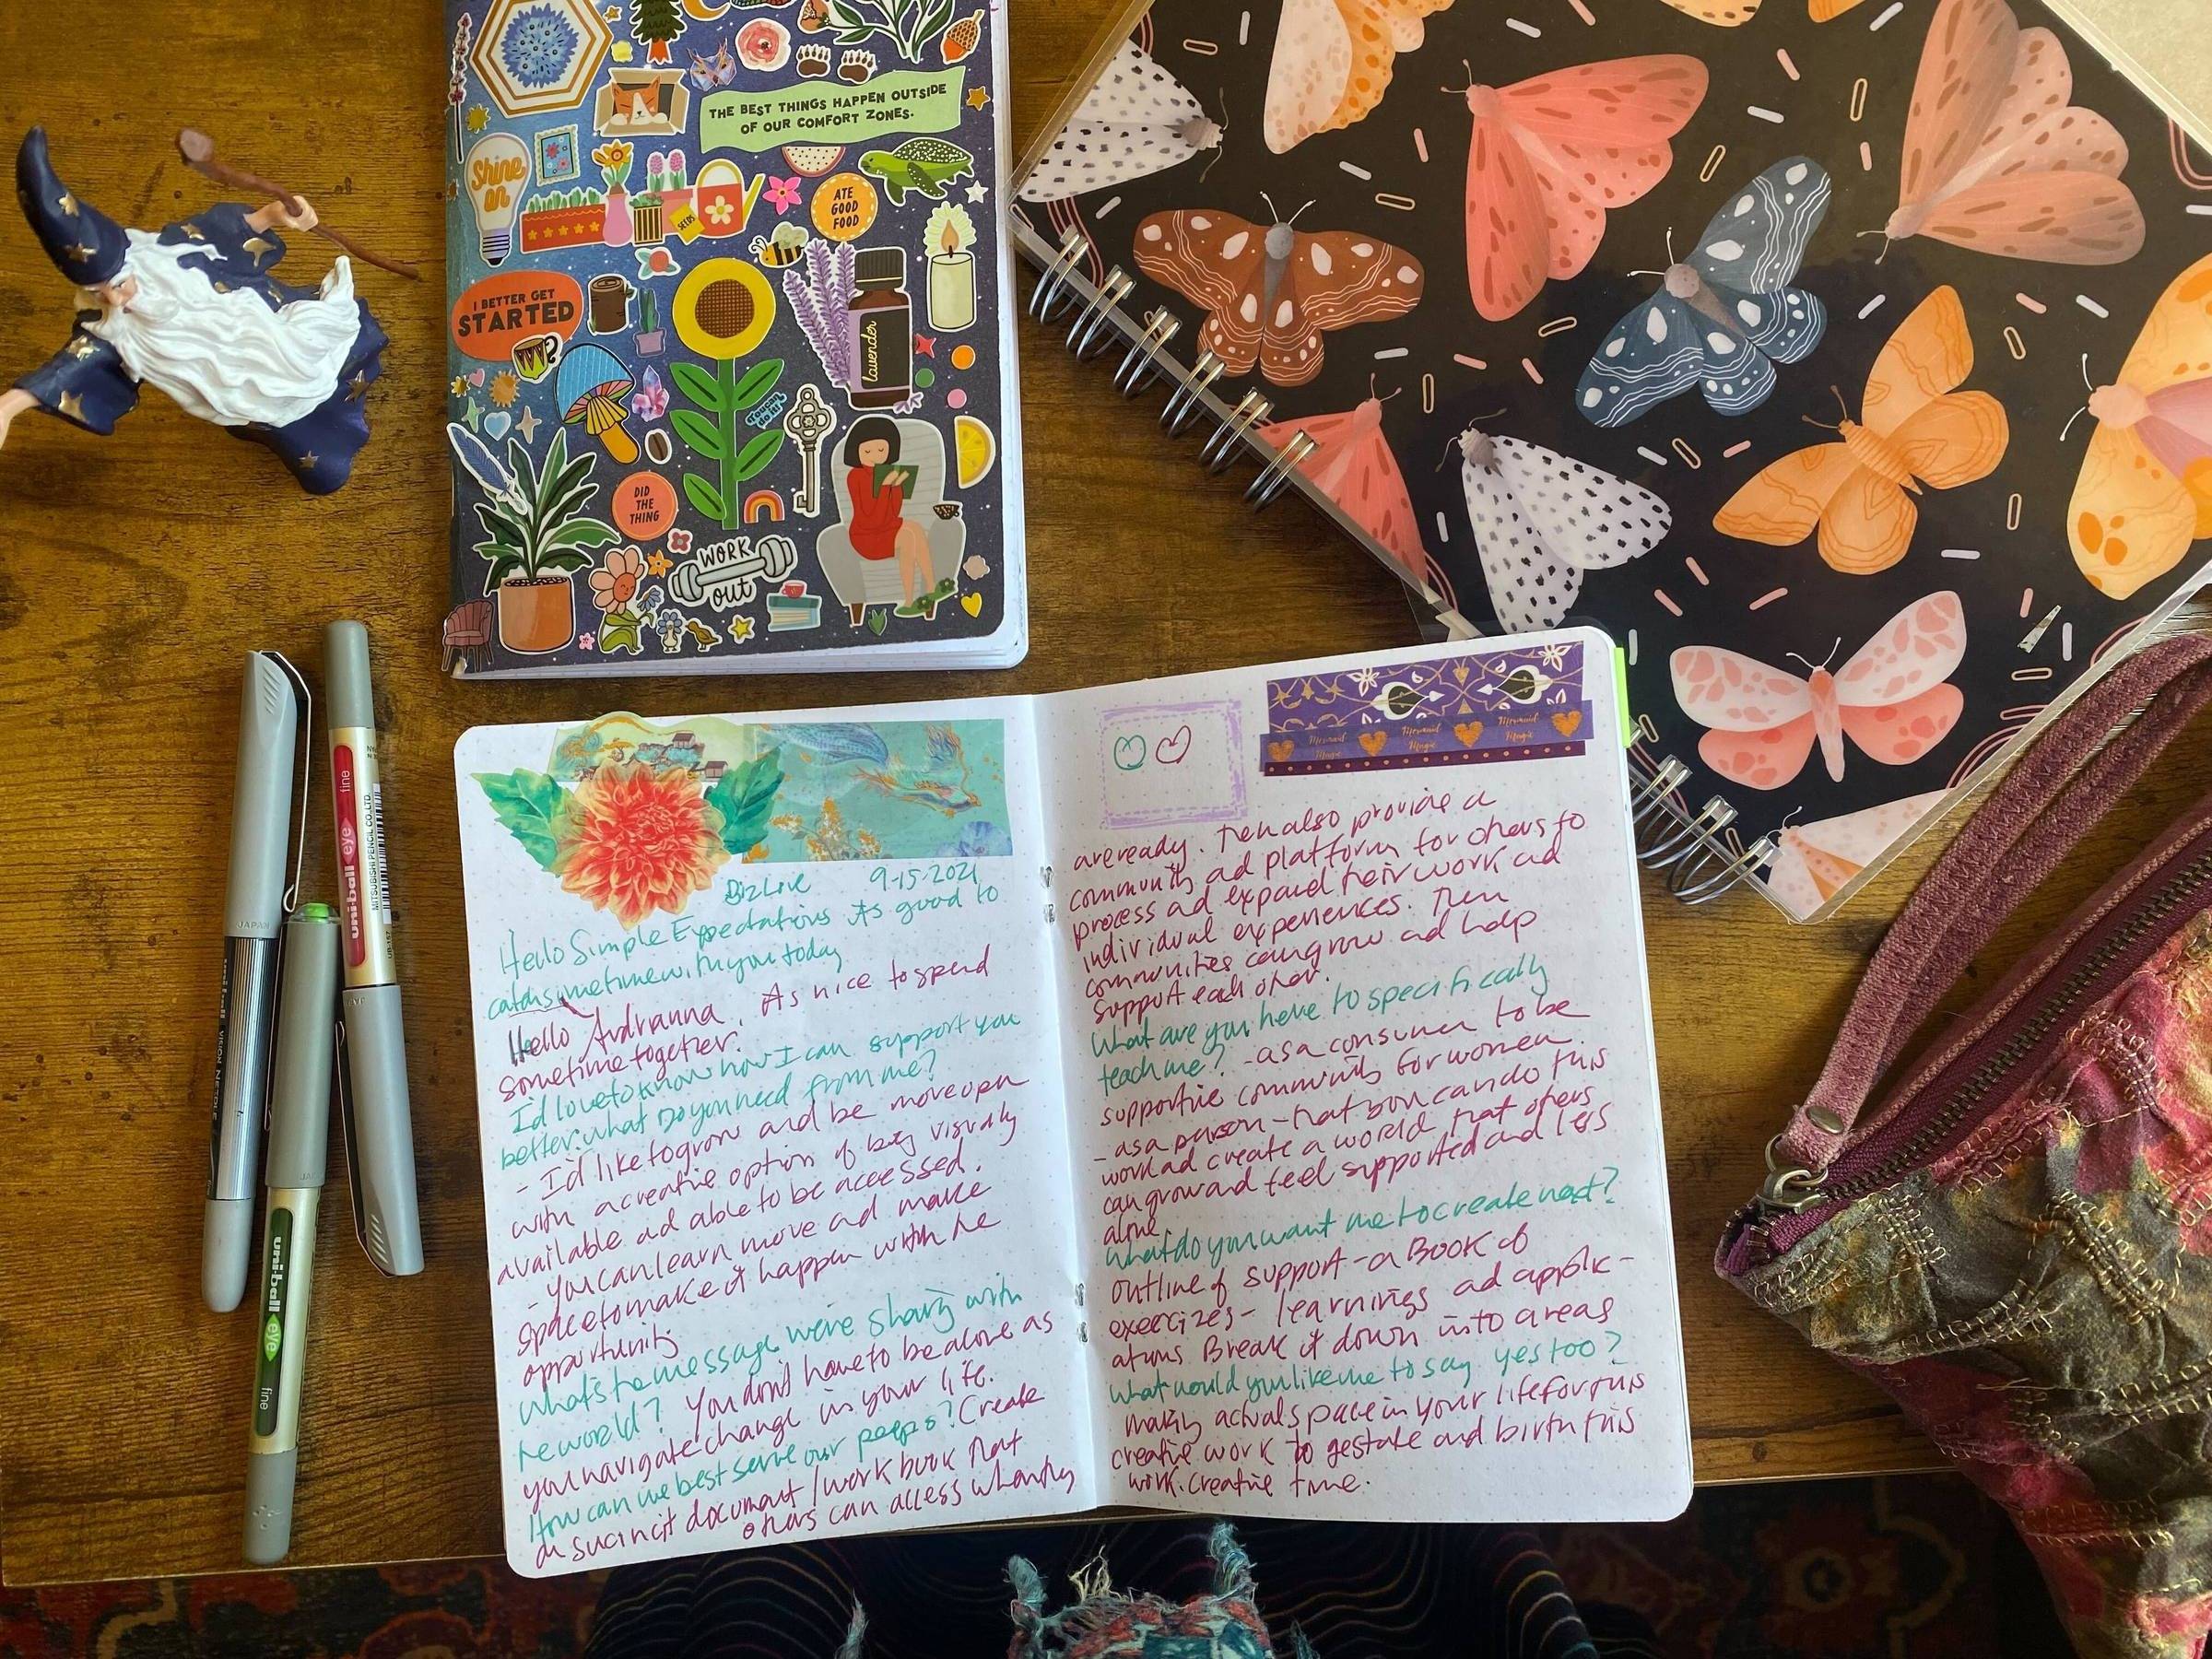 THE BEST THINGS HAPPEN OUTSIDE
OF OUR COMFORT ZONES.
Shine
on
SEEDS
ATE
GOOD
FOOD
I BETTER GET
STARTED
lavender
YOU CAN
do it!
DID
THE
THING
WORK
out
JAPAN
uni-ball eye fine
MITSUBISHI PENCIL CO., LTD.
UB-157
uni-ball eye fine
Mermaid Magic
Mermaid Magic
Mermaid Magic
BizLove 9-15-2021
Hello Simple Expectations its good to
catch sometime with you today
Hello Andrianna. Its nice to spend
sometime together.
I'd love to know how I can support you
better. what do you need from me?
- I'd like to grow and be more open
with a creative option of being visually
available ad able to be accessed.
- you can learn move ad make
space to make it happen with the
opportunity
what's the message we're sharing with
the world? You don't have to be alone as
you navigate change in your life.
How can we best serve our peeps? Create
a succinct document/workbook that
others can access when they
are ready. Then also provide a
community ad platform for others to
process ad expand their work ad
individual experiences. Then
communities can grow ad help
support each other.
What are you here to specifically
teach me? - as a consumer to be
supportive community for women
- as a person - that you can do this
work ad create a world that others
can grow and feel supported and less
alone
what do you want me to create next?
outline of support - a BOOK of
exercizes - learnings ad applic-
ations Break it down into areas
what would you like me to say yes too?
Making actual space in your life for this
creative work to gestate and birth this
work. Creative time.